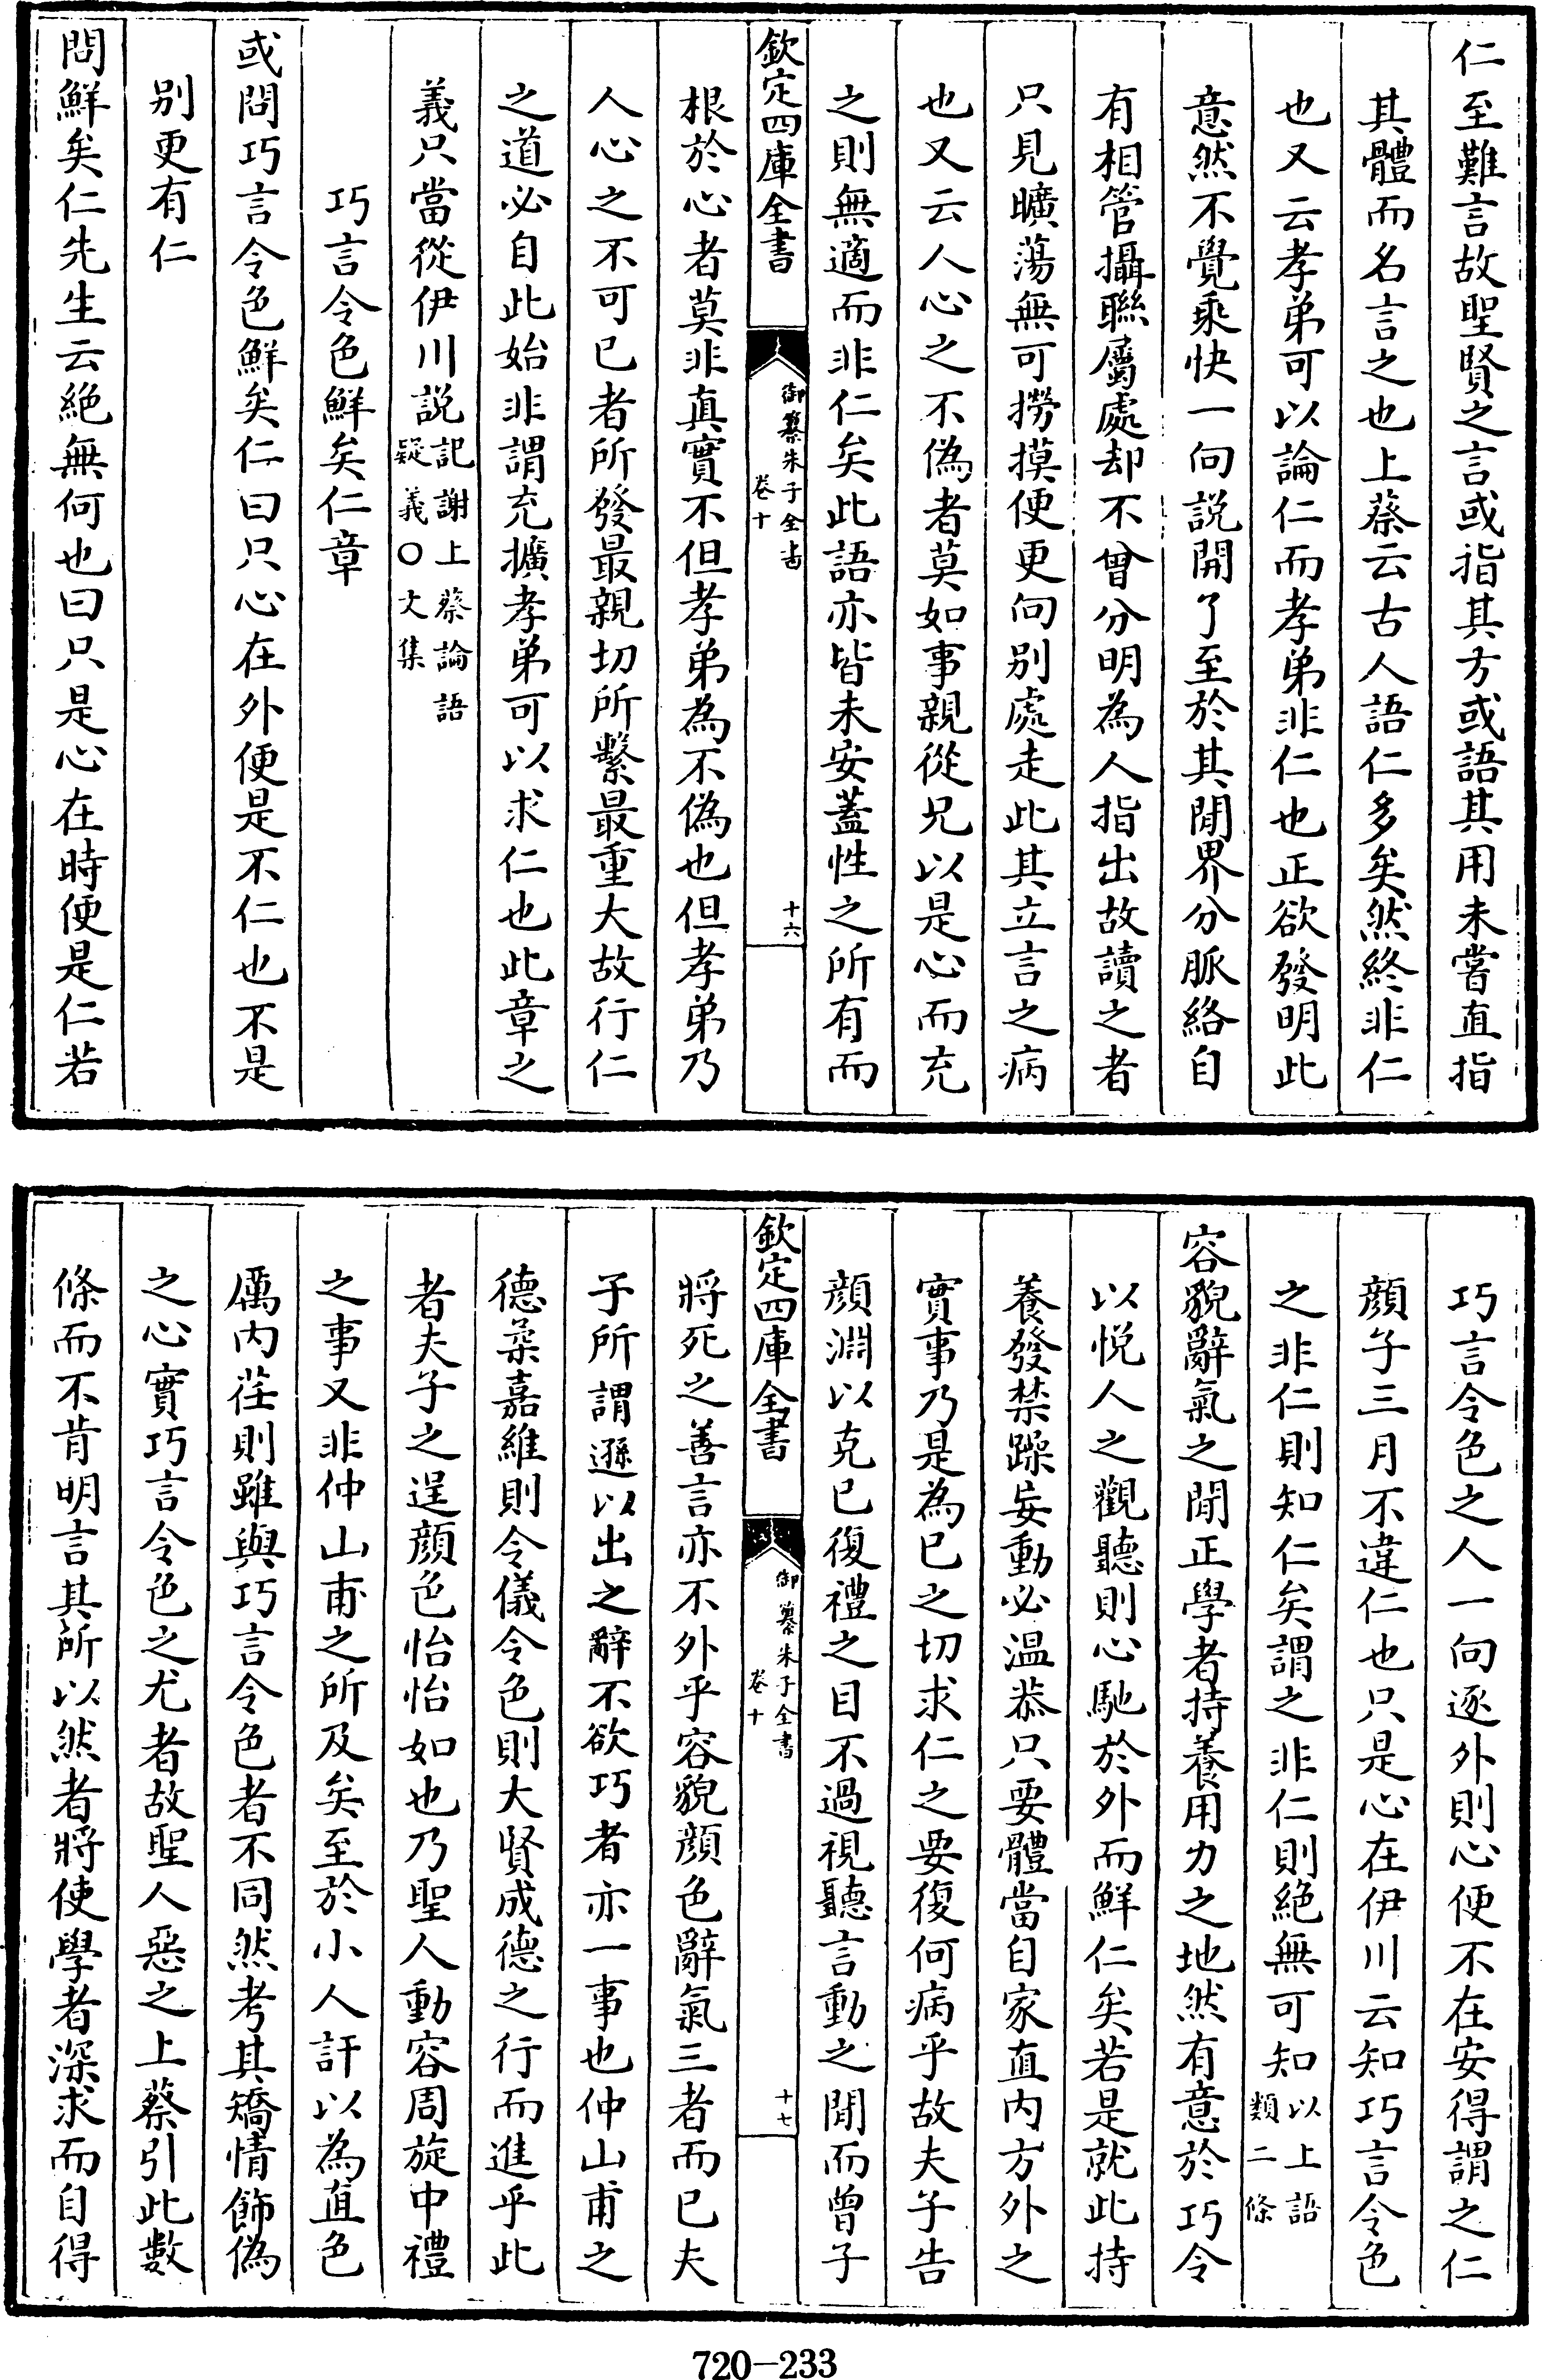 仁至難言故聖賢之言或指其方或語其用未嘗直指
其體而名言之也上蔡云古人語仁多矣然終非仁
也又云孝弟可以論仁而孝弟非仁也正欲發明此
意然不覺乘快一向説開了至於其閒界分脈絡自
有相管攝聯屬處却不曾分明為人指出故讀之者
只見曠蕩無可撈摸便更向别處走此其立言之病
也又云人心之不偽者莫如事親從兄以是心而充
之則無適而非仁矣此語亦皆未安蓋性之所有而
欽定四庫全書
御纂朱子全書
卷十
十六
根於心者莫非真實不但孝弟為不偽也但孝弟乃
人心之不可已者所發最親切所繫最重大故行仁
之道必自此始非謂充擴孝弟可以求仁也此章之
義只當從伊川説記謝上蔡論語
疑義〇文集
巧言令色鮮矣仁章
或問巧言令色鮮矣仁曰只心在外便是不仁也不是
别更有仁
問鮮矣仁先生云絶無何也曰只是心在時便是仁若
巧言令色之人一向逐外則心便不在安得謂之仁
顔子三月不違仁也只是心在伊川云知巧言令色
之非仁則知仁矣謂之非仁則絶無可知以上語
類二條
容貌辭氣之閒正學者持養用力之地然有意於巧令
以悦人之觀聽則心馳於外而鮮仁矣若是就此持
養發禁躁妄動必温恭只要體當自家直内方外之
實事乃是為已之切求仁之要復何病乎故夫子告
顔淵以克已復禮之目不過視聽言動之閒而曾子
欽定四庫全書
御纂朱子全書
卷十
十七
將死之善言亦不外乎容貌顔色辭氣三者而已夫
子所謂遜以出之辭不欲巧者亦一事也仲山甫之
德柔嘉維則令儀令色則大賢成德之行而進乎此
者夫子之逞顔色怡怡如也乃聖人動容周旋中禮
之事又非仲山甫之所及矣至於小人訐以為直色
厲内荏則雖與巧言令色者不同然考其矯情飾偽
之心實巧言令色之尤者故聖人惡之上蔡引此數
條而不肯明言其所以然者將使學者深求而自得
720-233